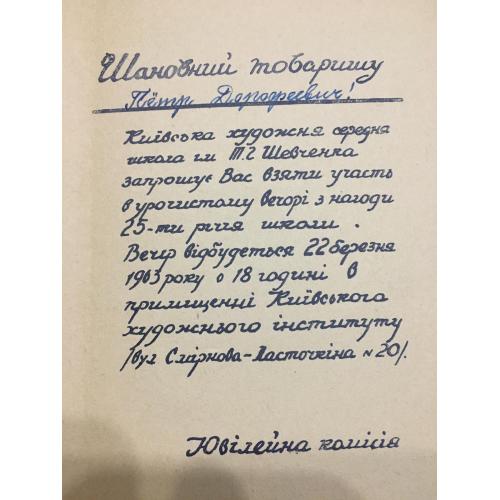 Шановний товаришу
Пётр Дорофеевич!
Київська художня середня
школа ім Т.Г. Шевченка
запрошує Вас взяти участь
в урочистому вечорі з нагоди
25-ти річчя школи.
Вечір відбудеться 22 березня
1963 року о 18 годині в
приміщенні Київського
художнього інституту
/вул Смірнова-Ласточкіна №20/.
Ювілейна комісія